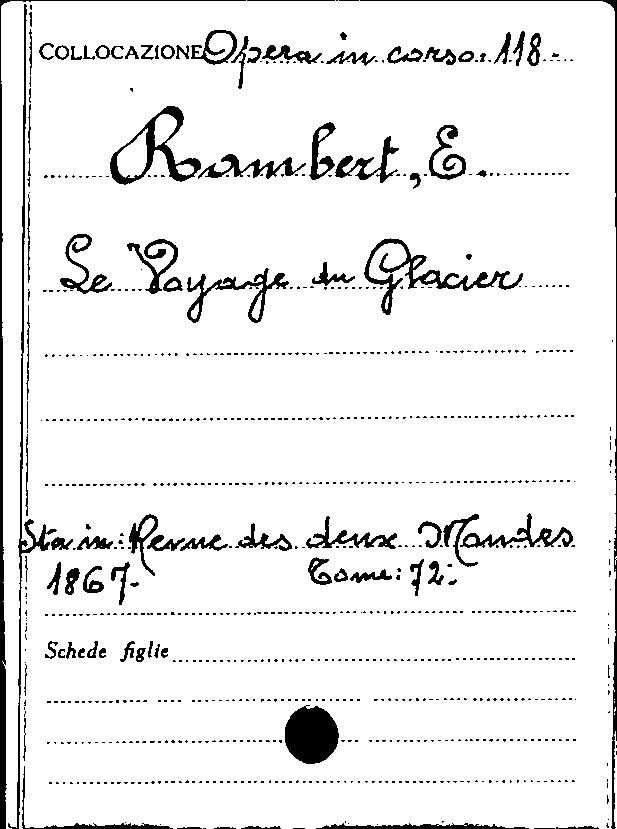 COLLOCAZIONE Opera in corso. 118.
Rambert, E.
Le Voyage du Glacier
Sta in: Revue des deux Mondes
1867. Tome: 72.
Schede figlie